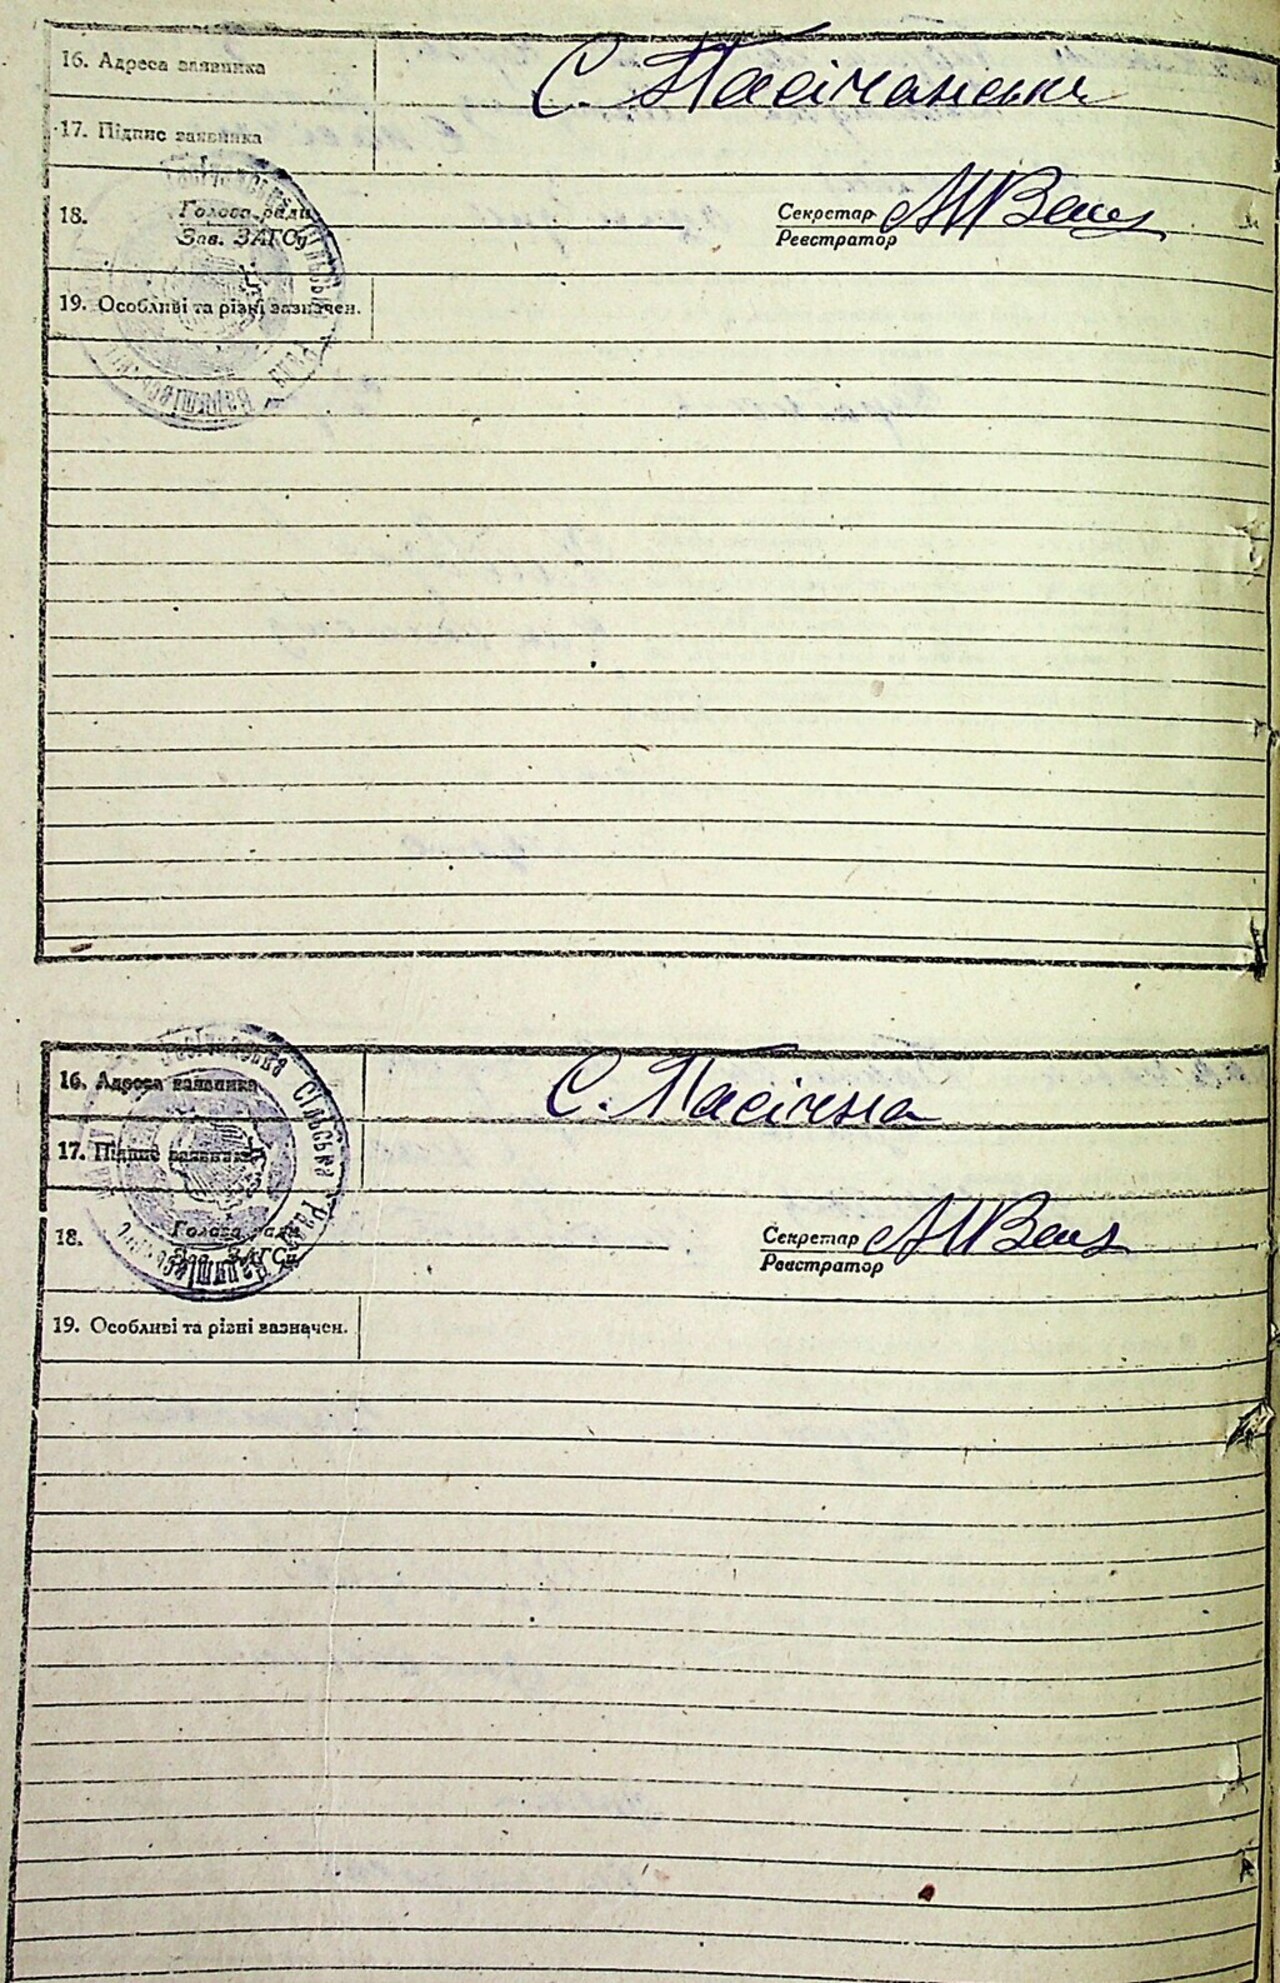 16. Адреса заявника
С. Пасічанська
17. Підпис заявника
18. Голова ради
Зав. ЗАГСу
Секретар
Реєстратор
19. Особливі та різні зазначен.
сільська Рада
16. Адреса заявника
С. Пасічна
17. Підпис заявника
18. Голова ради
Зав. ЗАГСу
Секретар
Реєстратор
19. Особливі та різні зазначен.
Сільська Рада